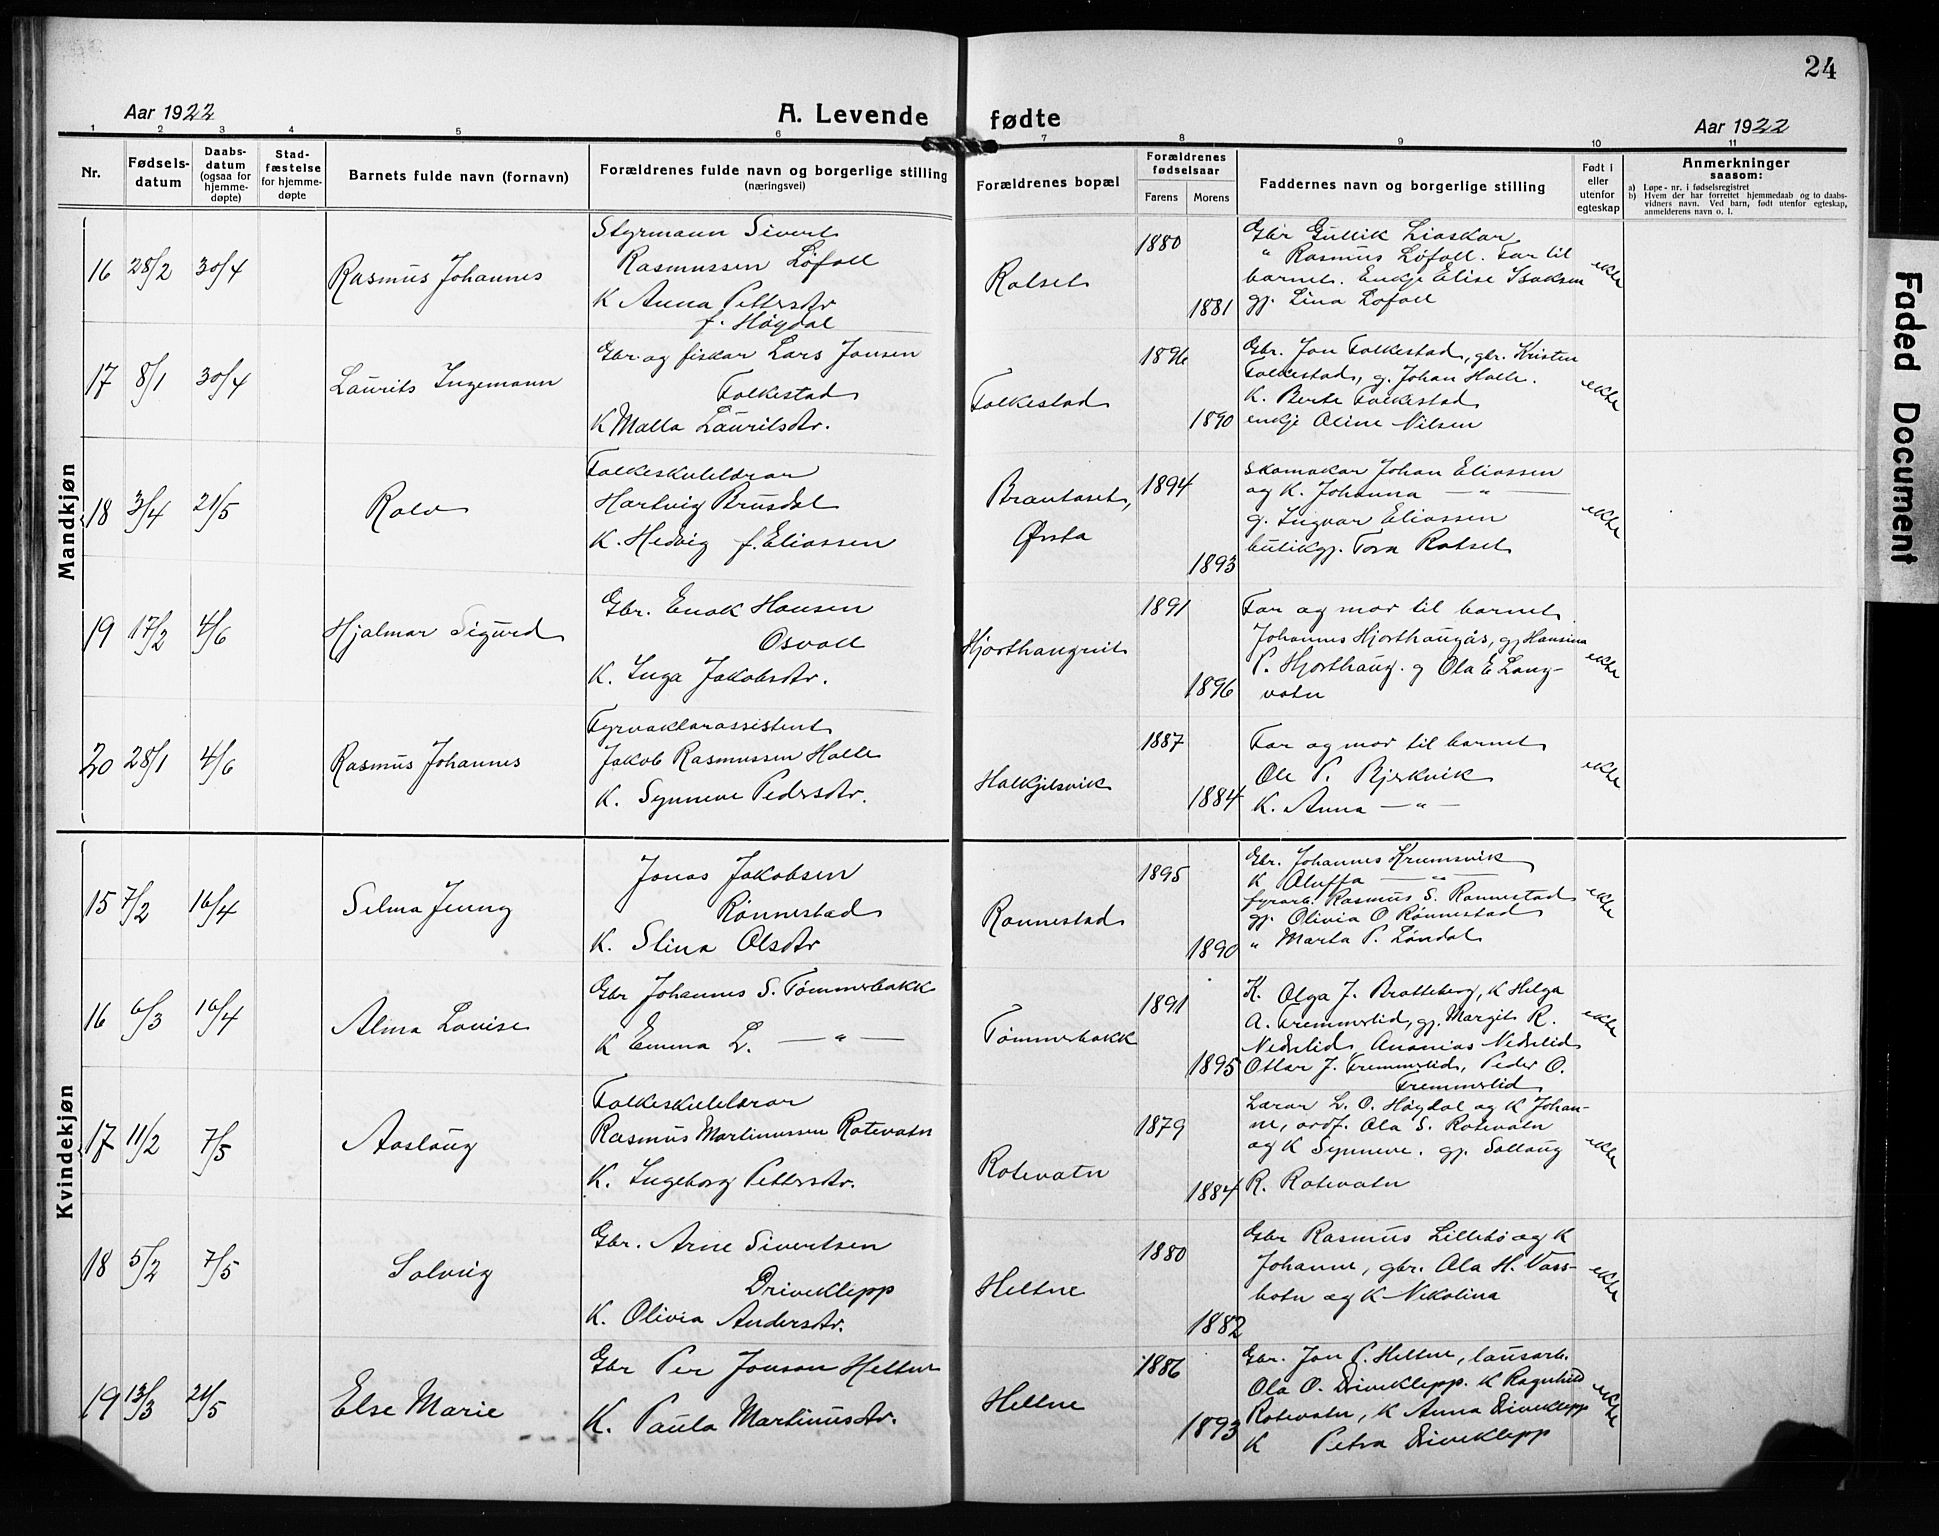 24
Aar 1922
A. Levende fødte
Aar 1922
1 2 3 4 5 6 7 8 9 10 11
Nr.
Fødsels-
datum
Daabs-
datum
(ogsaa for
hjemme-
døpte)
Stad-
fæstelse
for hjemme-
døpte
Barnets fulde navn (fornavn)
Forældrenes fulde navn og borgerlige stilling
(næringsvei)
Forældrenes bopæl
Forældrenes
fødselsaar
Farens Morens
Faddernes navn og borgerlige stilling
Født i
eller
utenfor
egteskap
Anmerkninger
saasom:
a) Løpe-nr. i fødselsregistret
b) Hvem der har forrettet hjemmedaab og to daabs-
vidners navn. Ved barn, født utenfor egteskap,
anmelderens navn o. l.
Mandkjøn
16 28/2 30/4 Rasmus Johannes
Styrmann Sivert
Rasmussen Løfoll
K Anna Pettersdtr
f. Høydal
Rotset
1880
1881
Gbr Gullik Lioskar
" Rasmus Løfoll. Far til
barnet. Enkje Elise Isaksen
gj. Lina Løfoll
ekte
17 8/1 30/4 Laurits Ingemann
Gbr. og fiskar Lars Jonsen
Folkestad
K Malla Lauritsdtr.
Folkestad
1896
1890
Gbr. Jon Folkestad, gbr. Kristen
Folkestad, g. Johan Halle.
K. Berte Folkestad
enkje Oline Nilsen
ekte
18 3/4 21/5 Rolv
Folkeskulelærar
Hartvig Brusdal
K. Hedvig f. Eliassen
Ørsta
1894
1893
Skomakar Johan Eliassen
og K. Johanna — " —
g. Ingvar Eliassen
butikgj. Tora Rotset
ekte
19 17/2 4/6 Hjalmar Sigurd
Gbr. Enok Hansen
Osvoll
K. Inga Jakobsdtr.
1891
1896
Far og mor til barnet
Johannes Hjorthaugås, gj Hansina
P. Hjorthaug. g Ola E Lang-
vatn
ekte
20 28/1 4/6 Rasmus Johannes
Fyrvaktarassistent
Jakob Rasmussen Halle
K. Synneve Pedersdtr.
Halkjelsvik
1887
1884
Far og mor til barnet
Ole P. Bjerkvik
K. Anna — " —
ekte
Kvindekjøn
15 7/2 16/4 Selma Jenny
Jonas Jakobsen
Rønnestad
K. Stina Olsdtr
Rønnestad
1895
1890
Gbr. Johannes Krumsvik
K Oluffa — " —
fyrarb. Rasmus S. Rønnestad
gj. Olivia O Rønnestad
" Marta P. Løndal
ekte
16 6/3 16/4 Alma Lovise
Gbr Johannes S. Tømmerbakk
K Emma L. — " —
Tømmerbakk
1891
1895
K. Olga J. Bratteberg, K Helga
A. Fremmerlid, gj. Margit R.
Nedrelid Ananias Nedrelid
Ottar J. Fremmerlid, Peder O.
Fremmerlid
ekte
17 11/2 7/5 Aaslaug
Folkeskulelærar
Rasmus Martinussen Rotevatn
K. Ingeborg Pettersdtr.
Rotevatn
1879
1884
Lærar L. O. Høydal og K Johan-
ne, ordf. Ola S. Rotevatn
og K Synneve. gj. Sollaug
R. Rotevatn
ekte
18 5/2 7/5 Solveig
Gbr. Arne Sivertsen
Driveklepp
K. Olivia Andersdtr.
Heltne
1880
1882
Gbr Rasmus Lillebø og K
Johanne, gbr. Ola H. Vass-
botn og K Nikolina
ekte
19 13/3 21/5 Else Marie
Gbr Per Jonson Heltne
K. Paula Martinusdtr.
Heltne
1886
1893
Gbr. Jon P. Heltne, lausarb.
Ola O. Driveklepp. K Ragnhild
Rotevatn, K Anna Driveklepp
K Petra Driveklepp
ekte
Faded Document